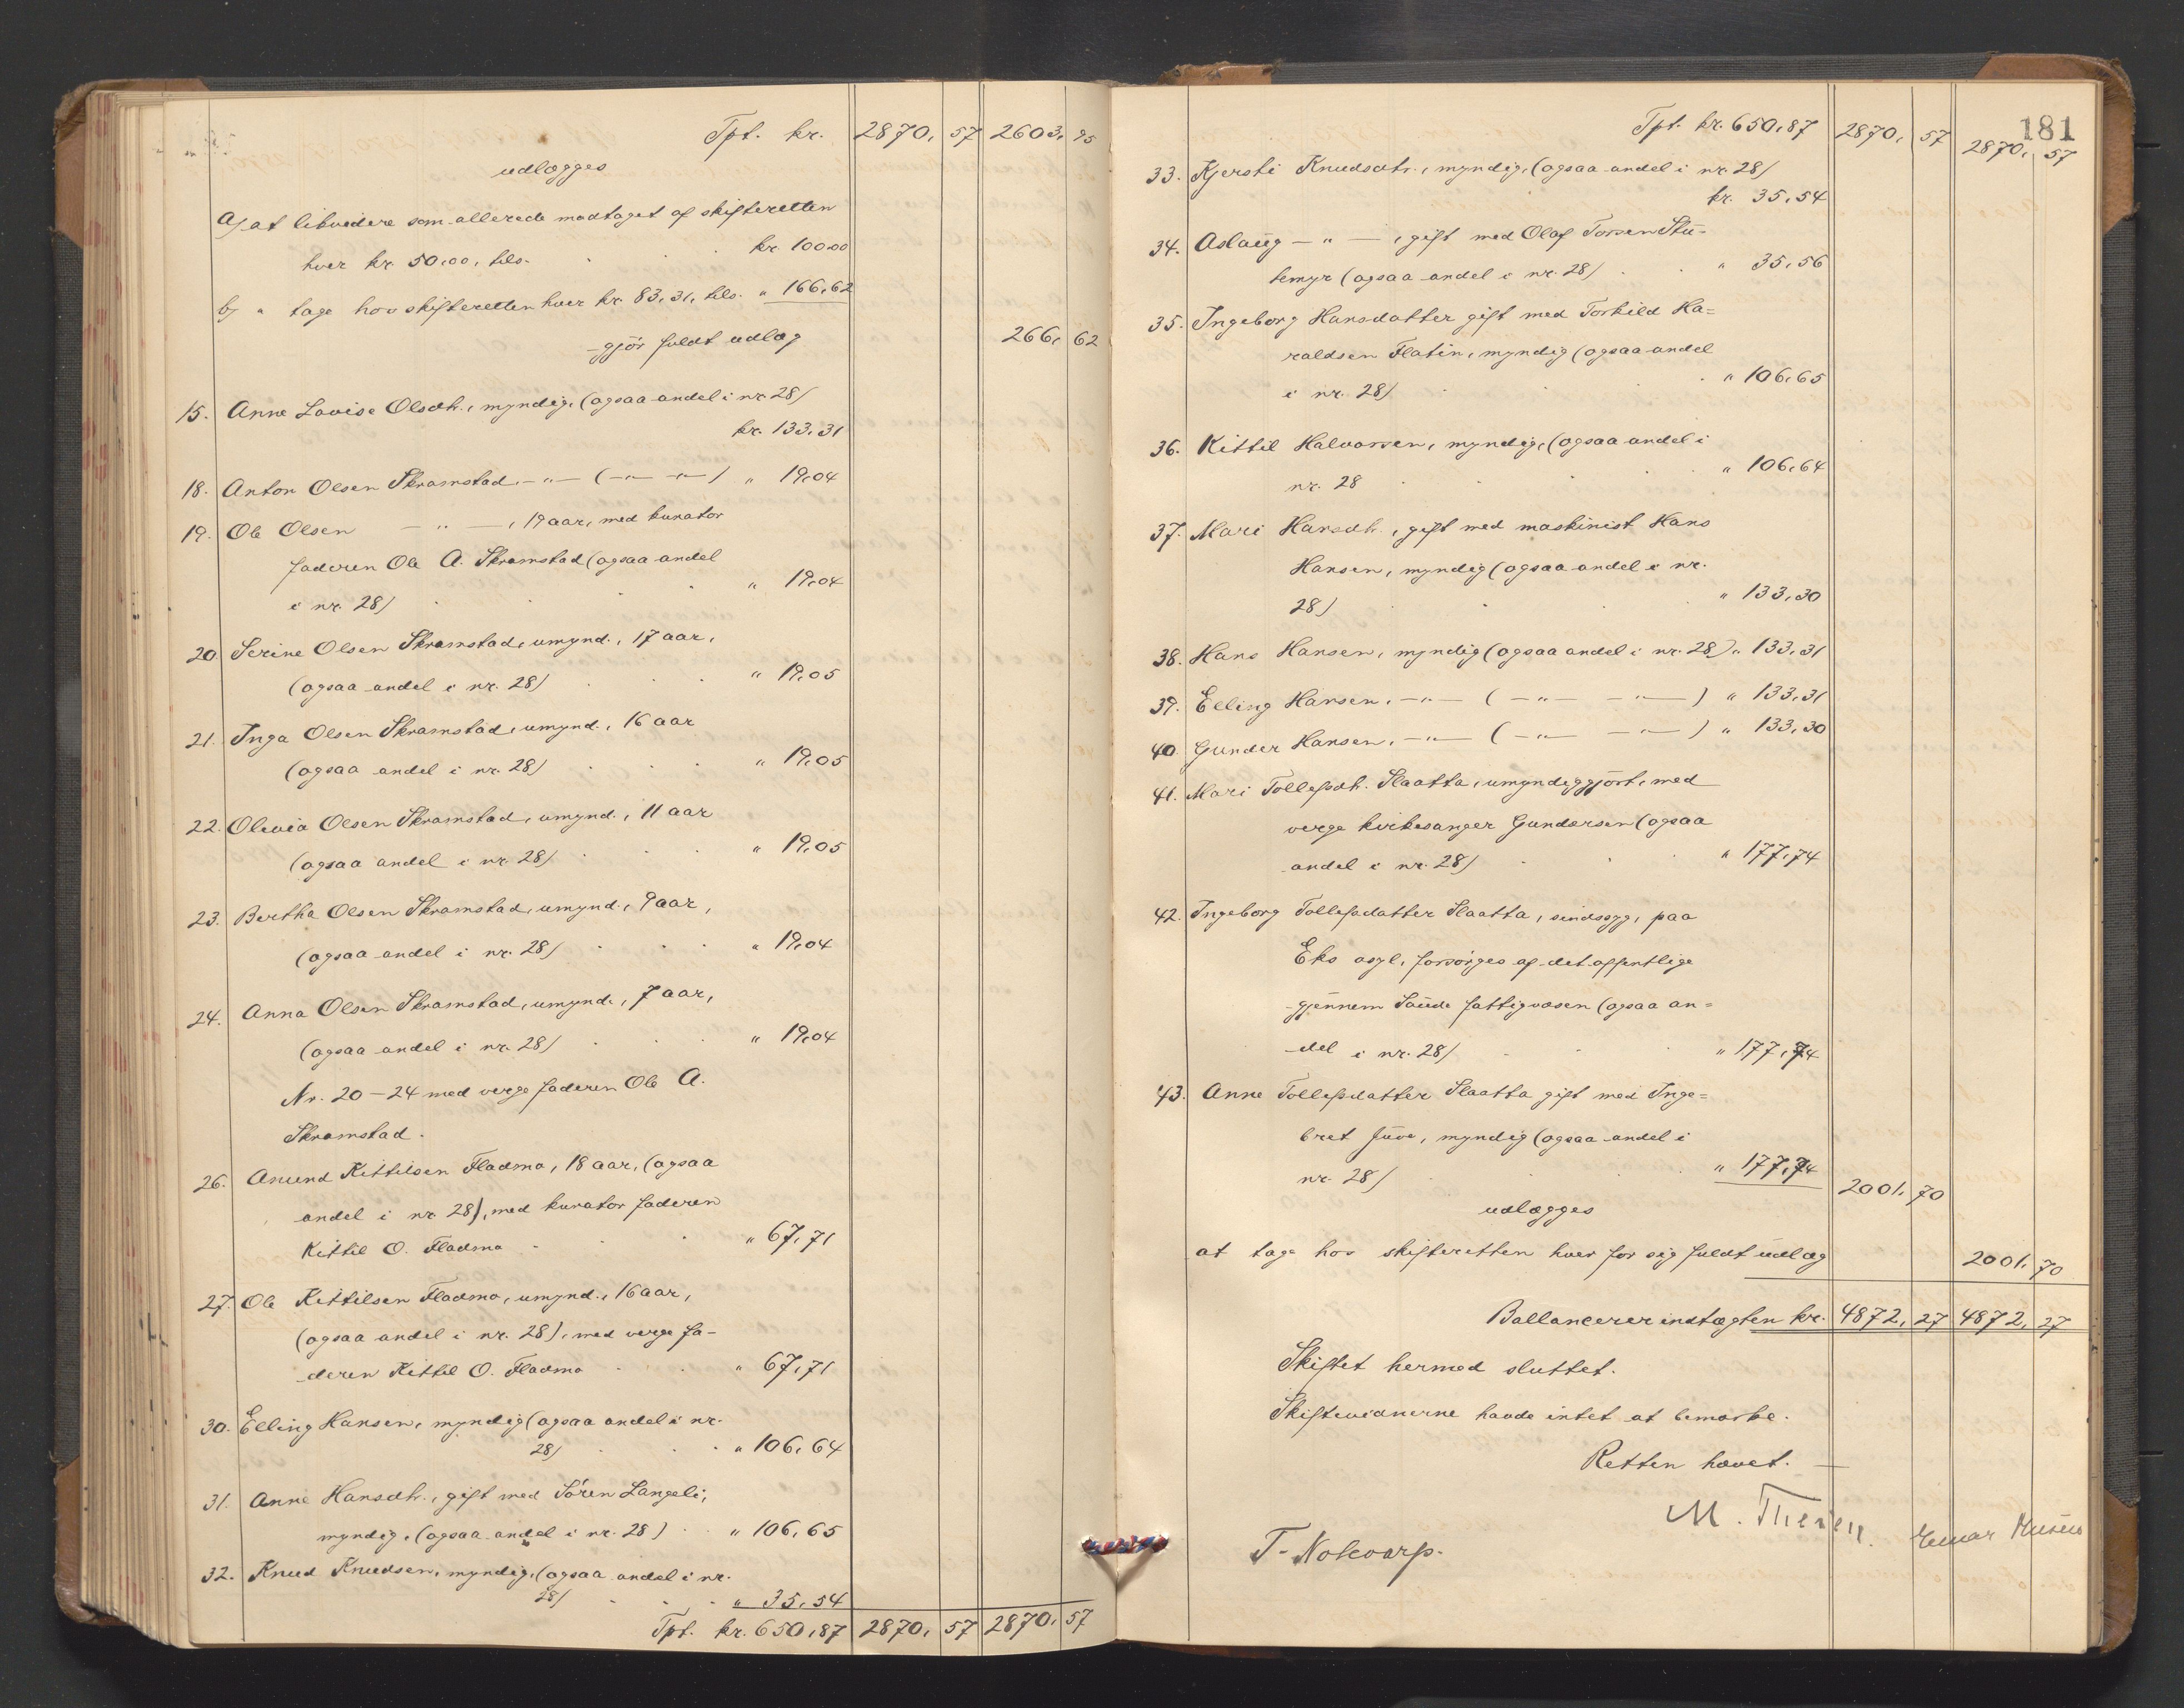 Tpt. kr. 2870, 57 2603, 95
udlægges
a) at likvidere som allerede modtaget af skifteretten
hver kr. 50,00, tils. kr. 100,00
b) " tage hos skifteretten hver kr. 83,31, tils. " 166,62
gjör fuldt udlæg 266, 62
15. Anne Lovise Olsdtr., myndig, (ogsaa andel i nr. 28)
kr. 133,31
18. Anton Olsen Skramstad, -"- (-"- -"-) " 19,04
19. Ole Olsen -"-, 19 aar, med kurator
faderen Ole A. Skramstad (ogsaa andel
i nr. 28) " 19,04
20. Serine Olsen Skramstad, umynd., 17 aar,
(ogsaa andel i nr. 28) " 19,05
21. Inga Olsen Skramstad, umynd., 16 aar
(ogsaa andel i nr. 28) " 19,05
22. Olivia Olsen Skramstad, umynd., 11 aar
(ogsaa andel i nr. 28) " 19,05
23. Bertha Olsen Skramstad, umynd., 9 aar,
(ogsaa andel i nr. 28) " 19,04
24. Anna Olsen Skramstad, umynd., 7 aar,
(ogsaa andel i nr. 28) " 19,04
Nr. 20-24 med verge faderen Ole A.
Skramstad.
26. Anund Kittilsen Fladmo, 18 aar, (ogsaa
andel i nr. 28), med kurator faderen
Kittil O. Fladmo " 67,71
27. Ole Kittilsen Fladmo, umynd., 16 aar,
(ogsaa andel i nr. 28), med verge fa-
deren Kittil O. Fladmo " 67,71
30. Elling Hansen, myndig (ogsaa andel i nr.
28) " 106,64
31. Anne Hansdtr., gift med Sören Langeli,
myndig, (ogsaa andel i nr. 28) " 106,65
32. Knud Knudsen, myndig, (ogsaa andel i nr.
28) " 35,54
Tpt. kr. 650,87 2870, 57 2870, 57
181
Tpt. kr. 650,87 2870, 57 2870, 57
33. Kjersti Knudsdtr., myndig, (ogsaa andel i nr. 28)
kr. 35,54
34. Aslaug -"-, gift med Olaf Torsen Stu-
temyr (ogsaa andel i nr. 28) " 35,56
35. Ingeborg Hansdatter gift med Torkild Ha=
raldsen Flatin, myndig (ogsaa andel
i nr. 28) " 106,65
36. Kittil Halvorsen, myndig, (ogsaa andel i
nr. 28 " 106,64
37. Mari Hansdtr., gift med maskinist Hans
Hansen, myndig (ogsaa andel i nr.
28) " 133,30
38. Hans Hansen, myndig (ogsaa andel i nr. 28) " 133,31
39. Elling Hansen, -"- (-"- -"-) " 133,31
40. Gunder Hansen, -"- (-"- -"-) " 133,30
41. Mari Tollefsdtr. Slaatta, umyndiggjört, med
verge kirkesanger Gundersen (ogsaa
andel i nr. 28) " 177,74
42. Ingeborg Tollefsdatter Slaatta, sindssyg, paa
Eks asyl, forsörges af det offentlige
gjennem Saude fattigvæsen (ogsaa an=
del i nr. 28) " 177,74
43. Anne Tollefsdatter Slaatta gift med Inge=
bret Juve, myndig (ogsaa andel i
nr. 28) " 177,74 2001, 70
udlægges
at tage hos skifteretten hver for sig fuldt udlæg 2001, 70
Ballancerer indtægten kr. 4872, 27 4872, 27
Skiftet hermed sluttet.
Skiftevidnerne havde intet at bemærke.
Retten hævet.
M. Thesen. Einar
T.